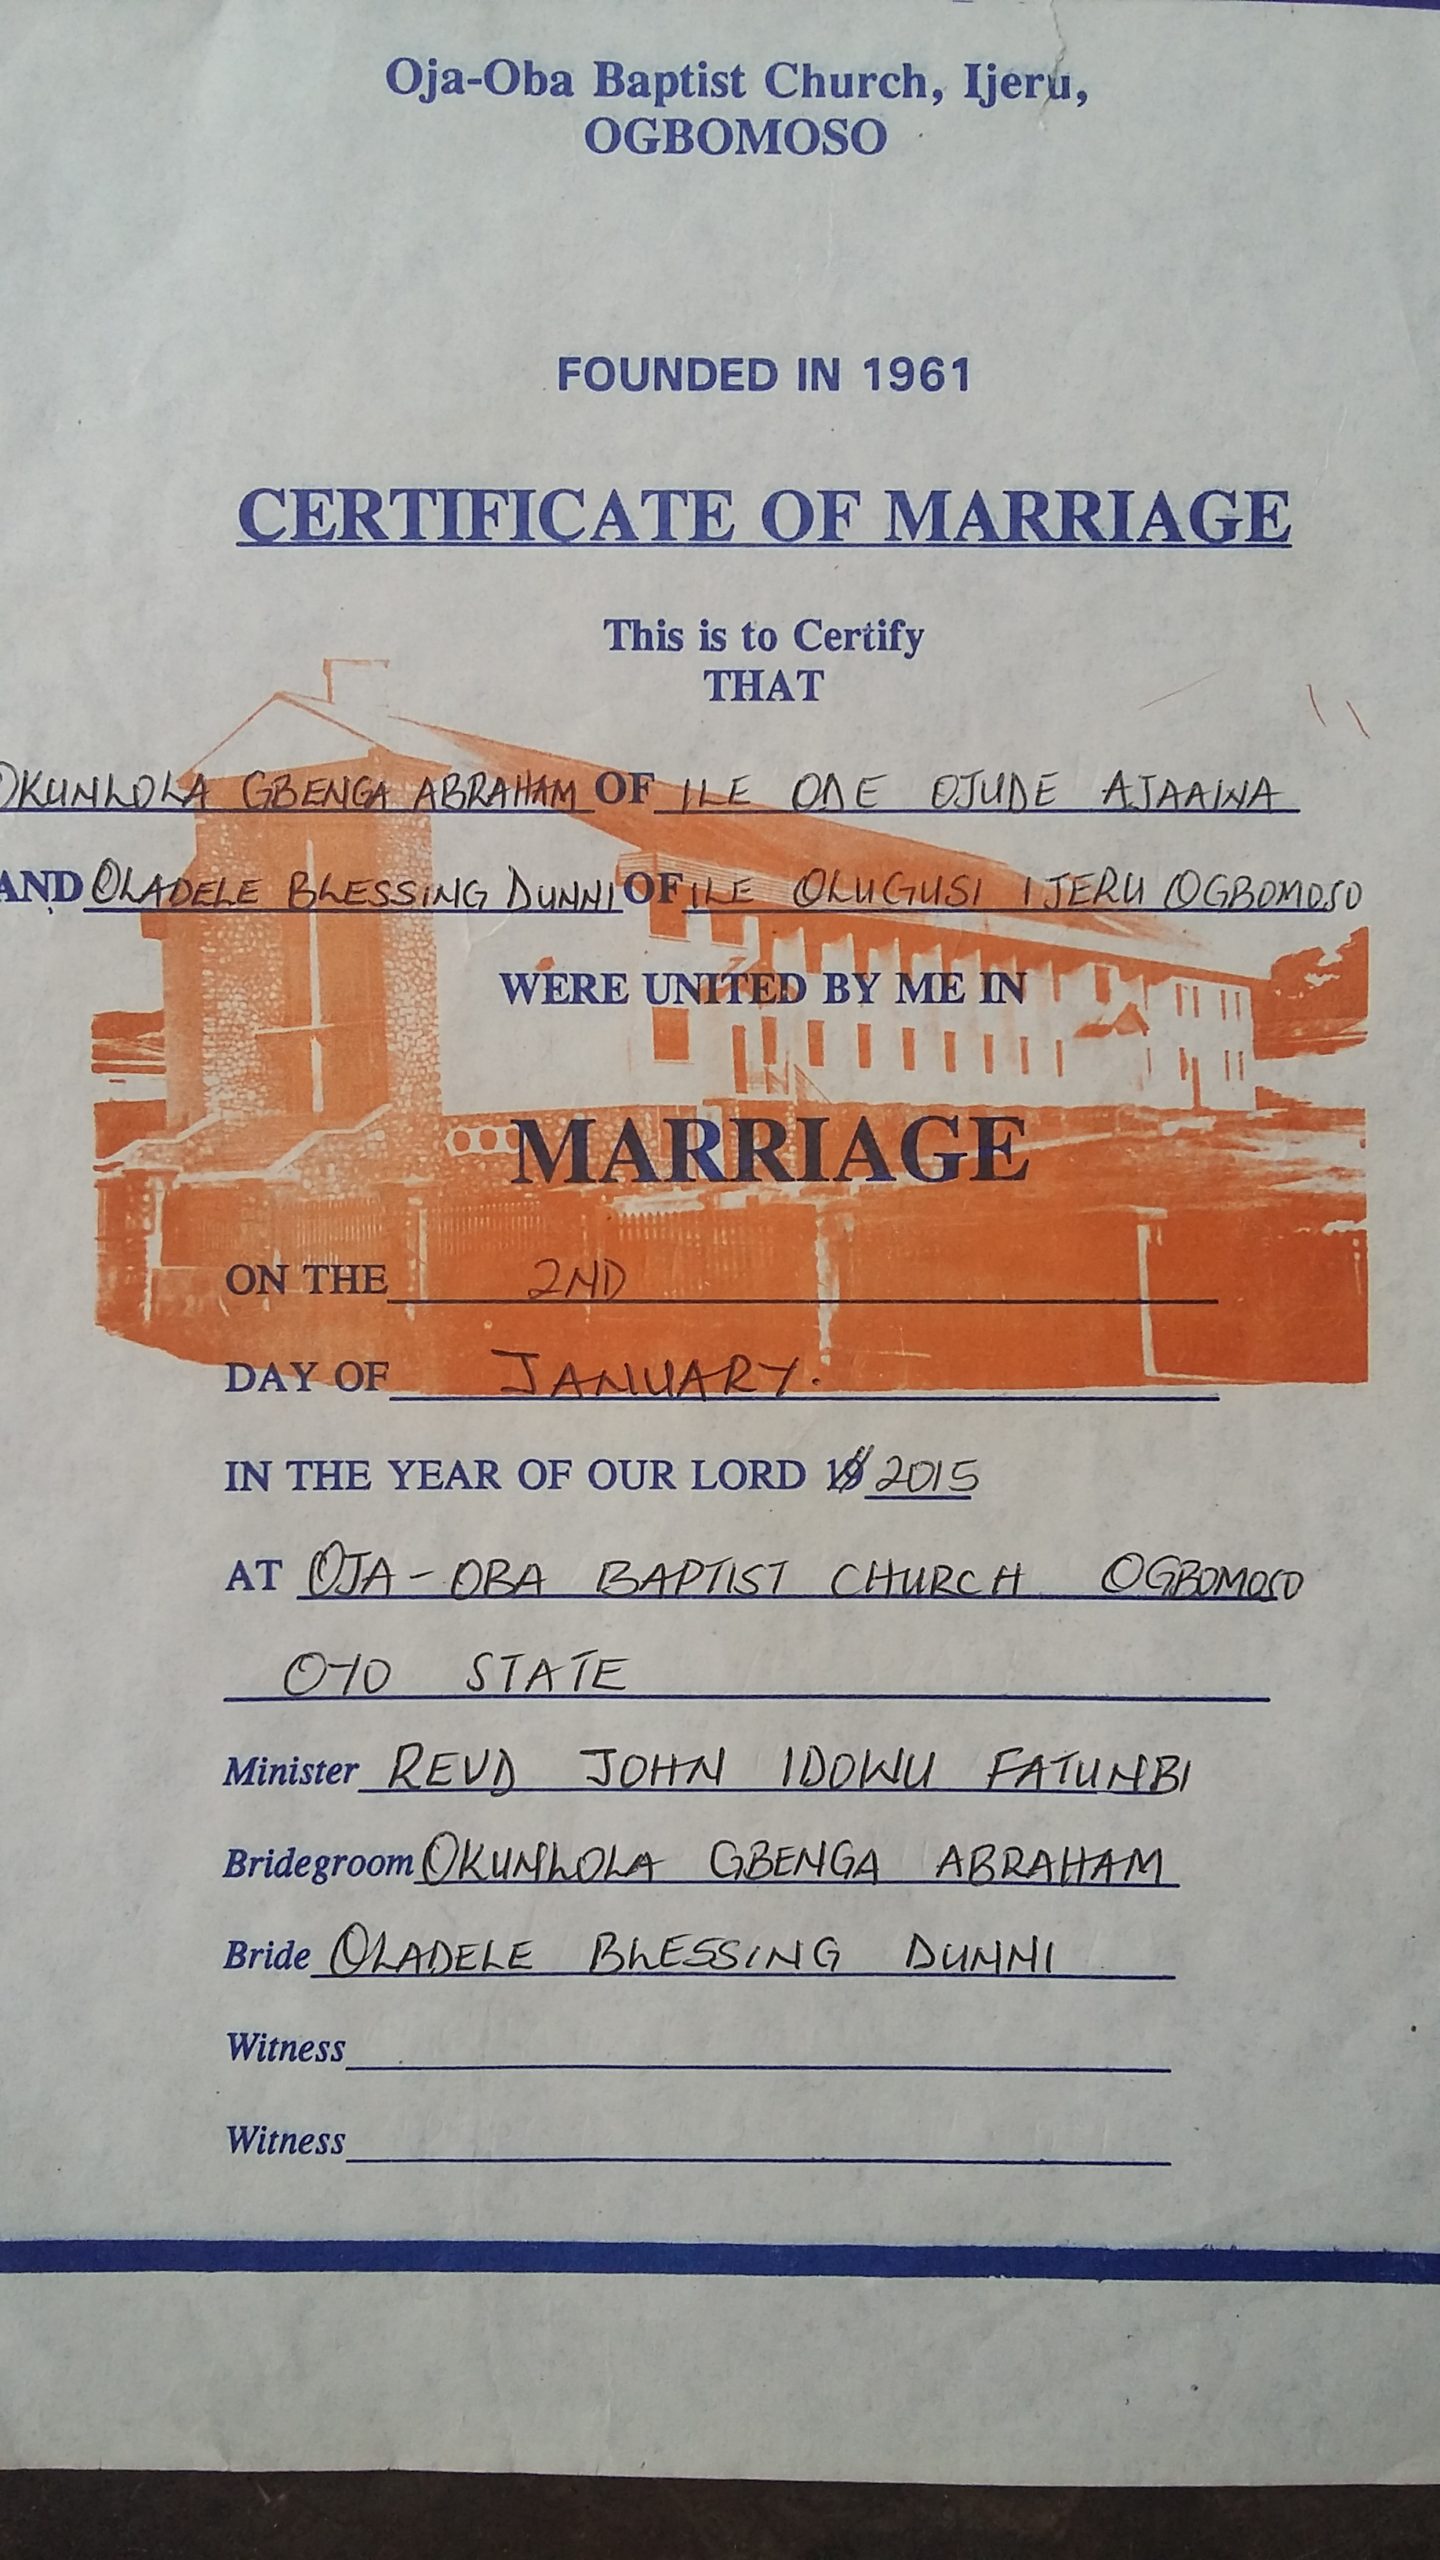 Oja-Oba Baptist Church, Ijeru,
OGBOMOSO
FOUNDED IN 1961
CERTIFICATE OF MARRIAGE
This is to Certify
THAT
OKUNLOLA GBENGA ABRAHAM OF ILE ODE OJUDE AJAAWA
AND OLADELE BLESSING DUNNI OF ILE OLUGUSI IJERU OGBOMOSO
WERE UNITED BY ME IN
MARRIAGE
ON THE 2ND
DAY OF JANUARY.
IN THE YEAR OF OUR LORD 19 2015
AT OJA-OBA BAPTIST CHURCH OGBOMOSO
OYO STATE
Minister REVD JOHN IDOWU FATUNBI
Bridegroom OKUNLOLA GBENGA ABRAHAM
Bride OLADELE BLESSING DUNNI
Witness
Witness